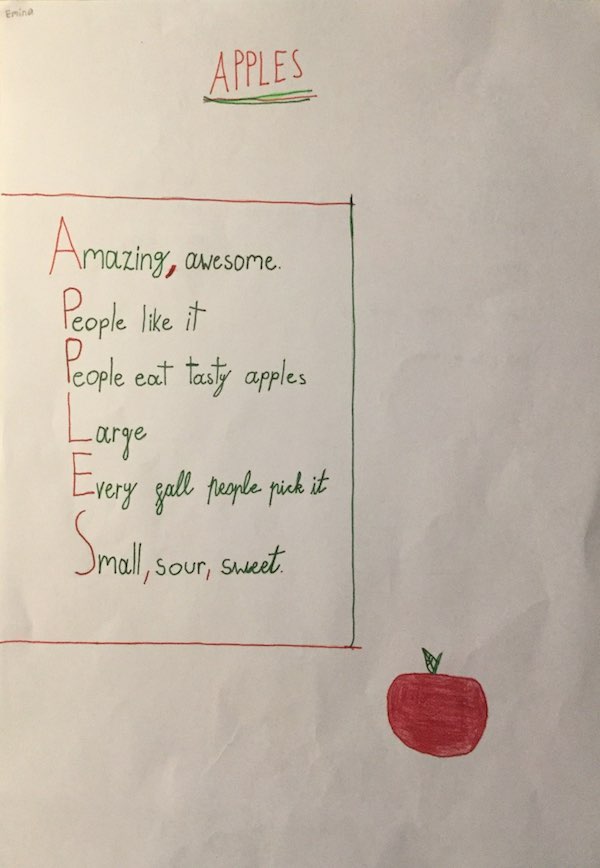 Emina
APPLES
Amazing, awesome.
People like it
People eat tasty apples
Large
Every fall people pick it
Small, sour, sweet.